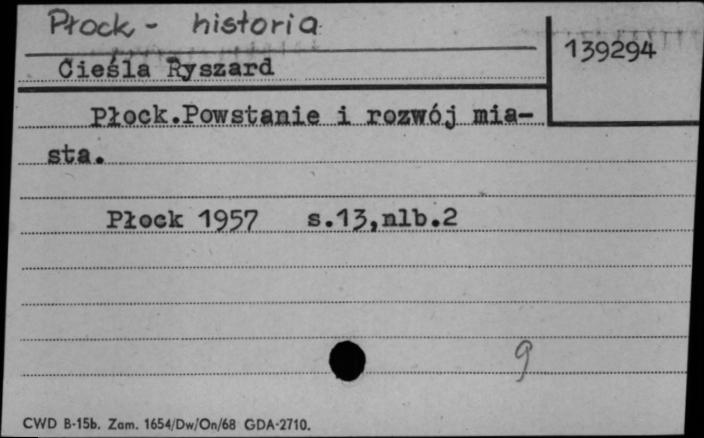 Płock - historia
139294
Cieśla Ryszard
Płock.Powstanie i rozwój mia-
sta.
Płock 1957 s.13,nlb.2
9
CWD B-15b. Zam. 1654/Dw/On/68 GDA-2710.